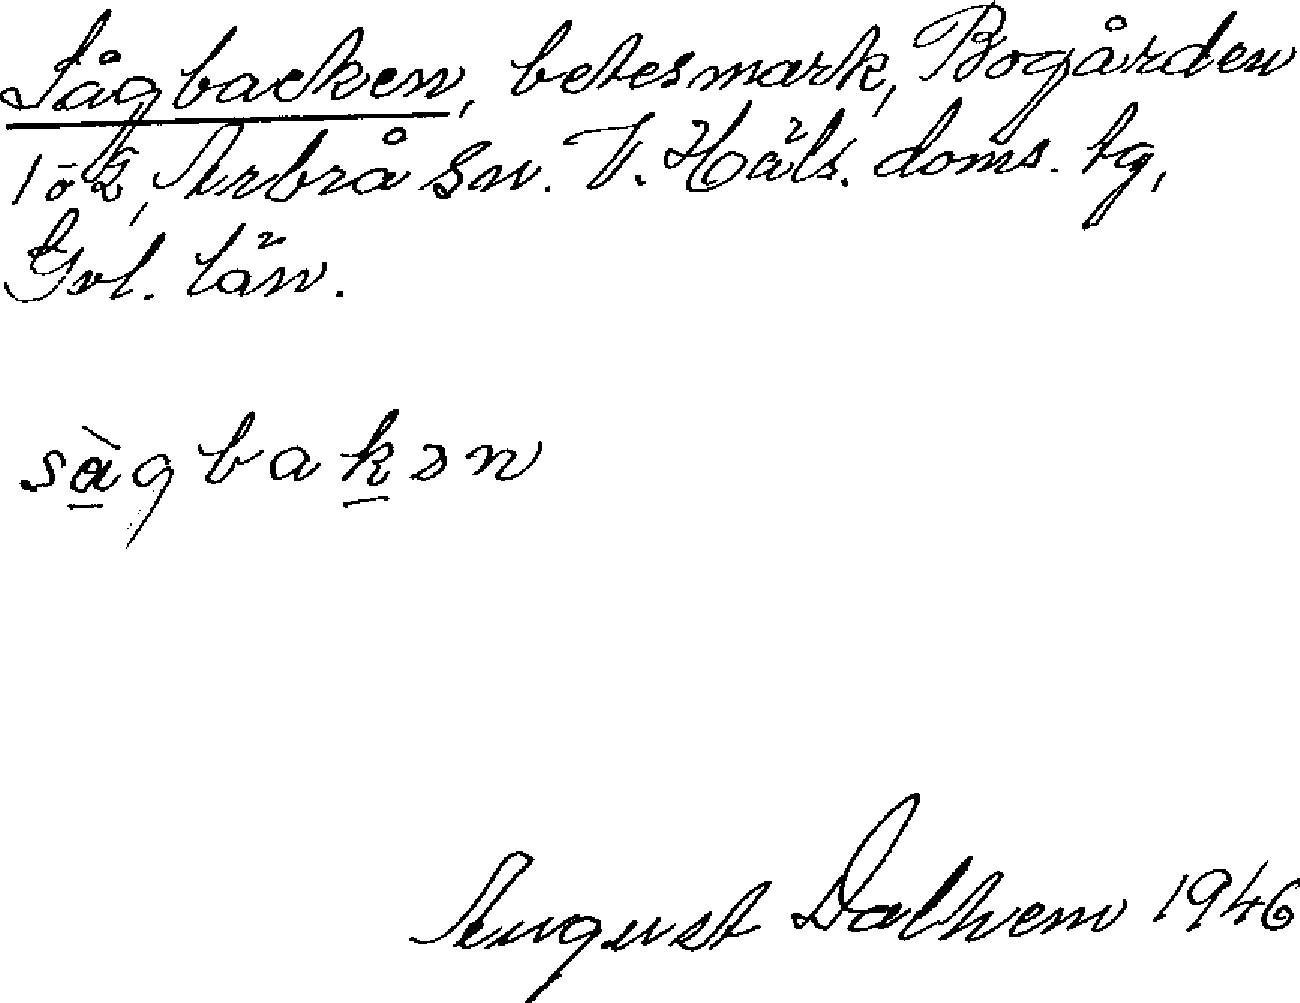 Sågbacken, betesmark, Bogården
1 o 2, Arbrå sn. V. Häls. doms. tg,
Gvl. län.
sàgbakən
August Dalhem 1946